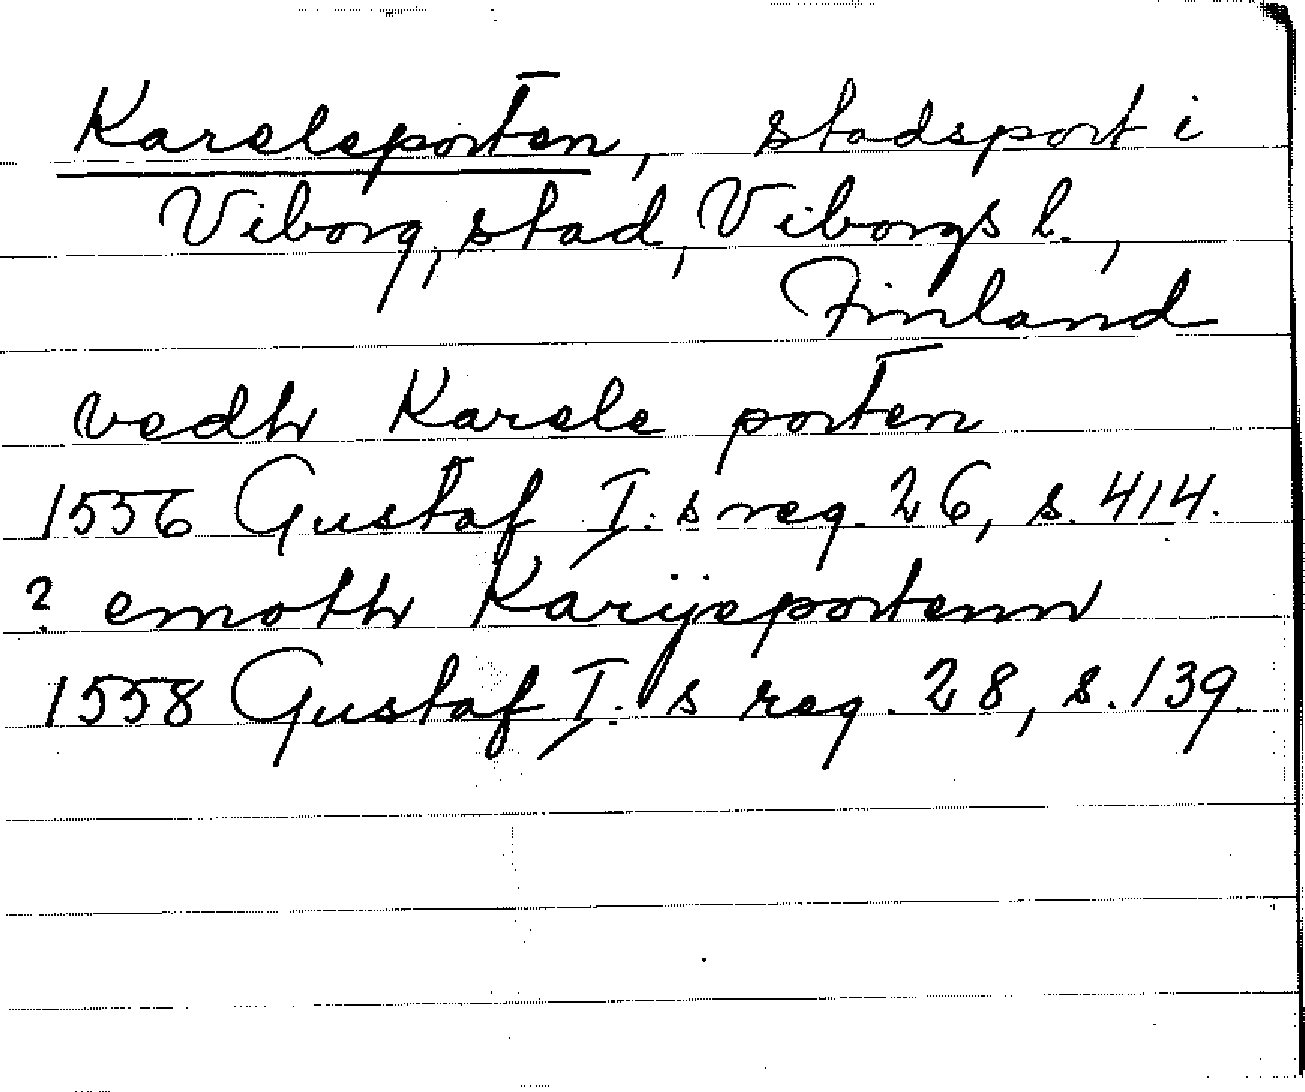 Kareleporten, stadsport i
Viborg, stad, Viborgs l.,
Finland
vedh Karele porten
1556 Gustaf I:s reg. 26, s. 414.
? emoth Karijeportenn
1558 Gustaf I:s reg. 28, s. 139.